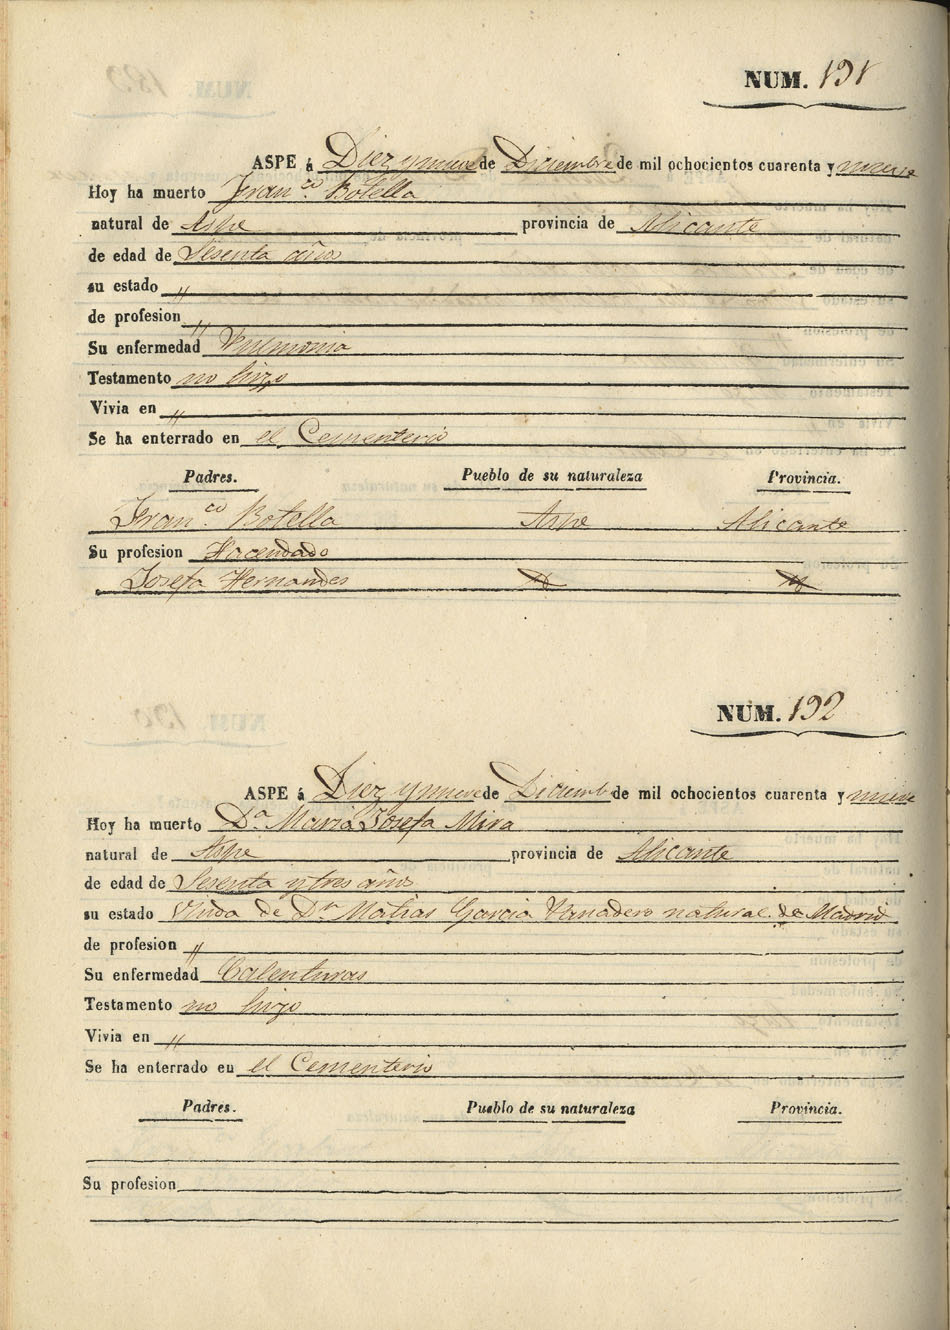 NUM. 191
ASPE á Diez y nueve de Diciembre de mil ochocientos cuarenta y nueve
Hoy ha muerto Fran.co Botella
natural de Aspe provincia de Alicante
de edad de Sesenta años
su estado "
de profesion "
Su enfermedad Pulmonia
Testamento no hizo
Vivia en "
Se ha enterrado en el Cementerio
Padres. Pueblo de su naturaleza Provincia.
Fran.co Botella Aspe Alicante
Su profesion Hacendado
Josefa Hernandes
NUM. 192
ASPE á Diez y nueve de Diciemb de mil ochocientos cuarenta y nueve
Hoy ha muerto Da Maria Josefa Mira
natural de Aspe provincia de Alicante
de edad de Sesenta y tres años
su estado Viuda de Dn Matias Garcia natural de Madrid
de profesion "
Su enfermedad Calenturas
Testamento no hizo
Vivia en "
Se ha enterrado en el Cementerio
Padres. Pueblo de su naturaleza Provincia.
Su profesion